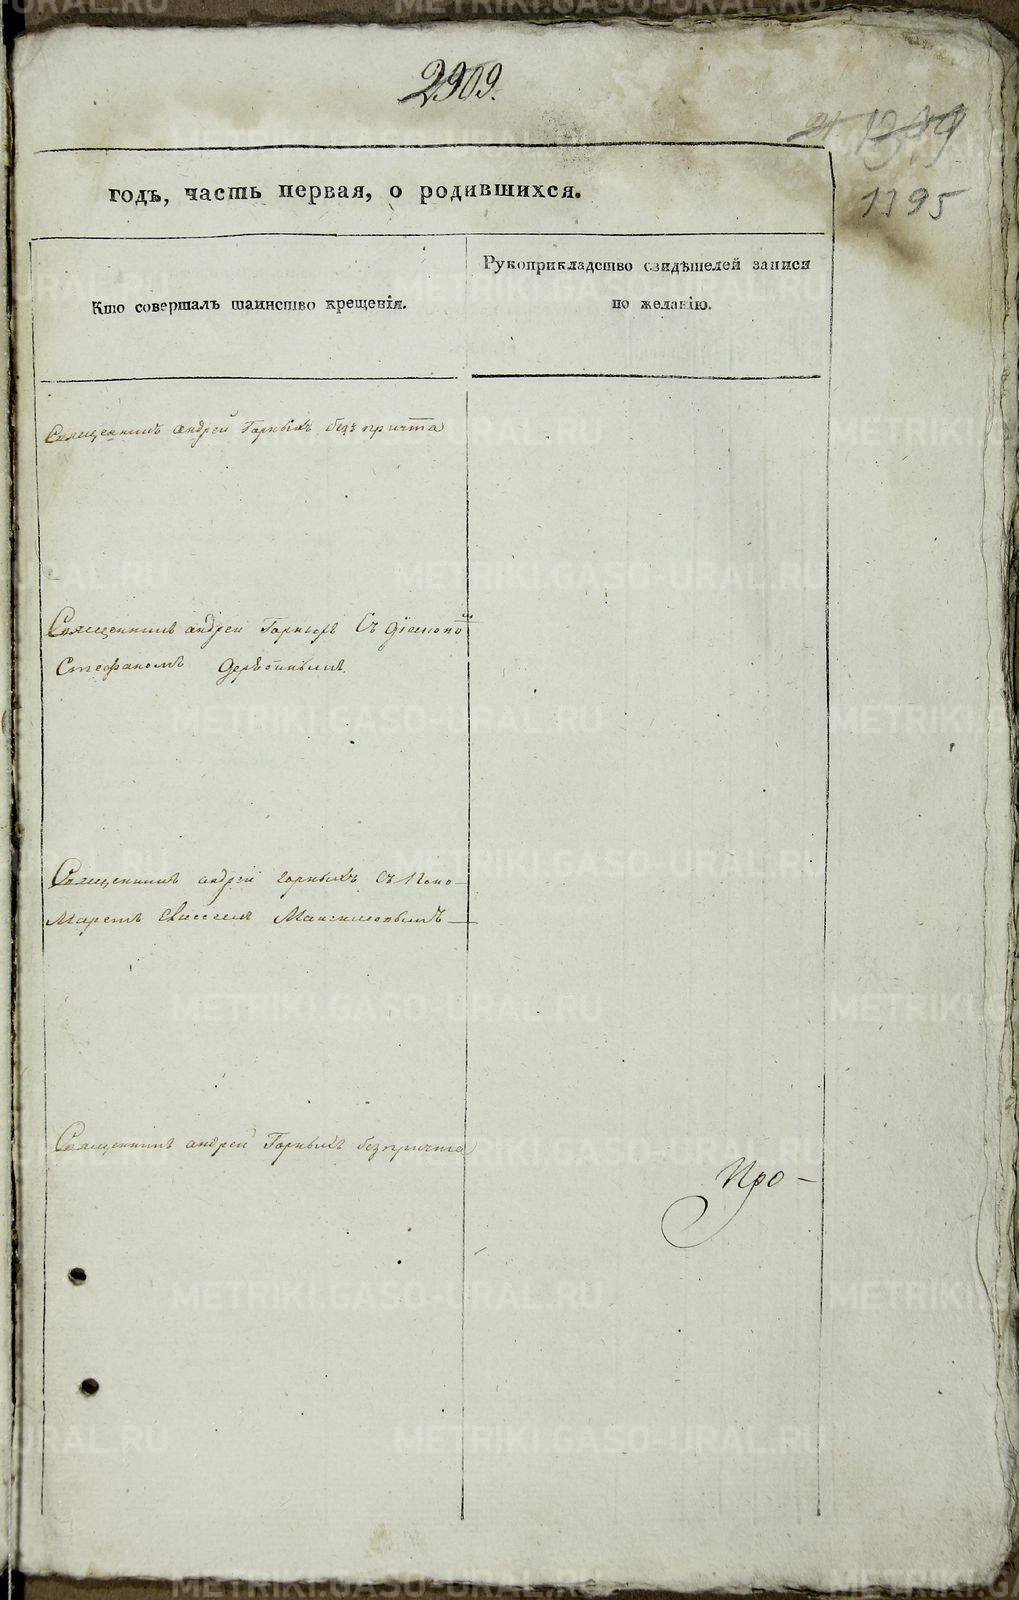 2909.
1195
годъ, часть первая, о родившихся.
Кто совершалъ таинство крещенія.
Рукоприкладство свидѣтелей записи
по желанію.
Священникъ андрей Горныхъ безъ причта
Священникъ андрей Горныхъ Съ діакономъ
Стефаномъ
Священникъ андрей Горныхъ Съ Поно-
Маремъ Максимовымъ
Священникъ андрей Горныхъ без причта
Про-
METRIKI.GASO-URAL.RU